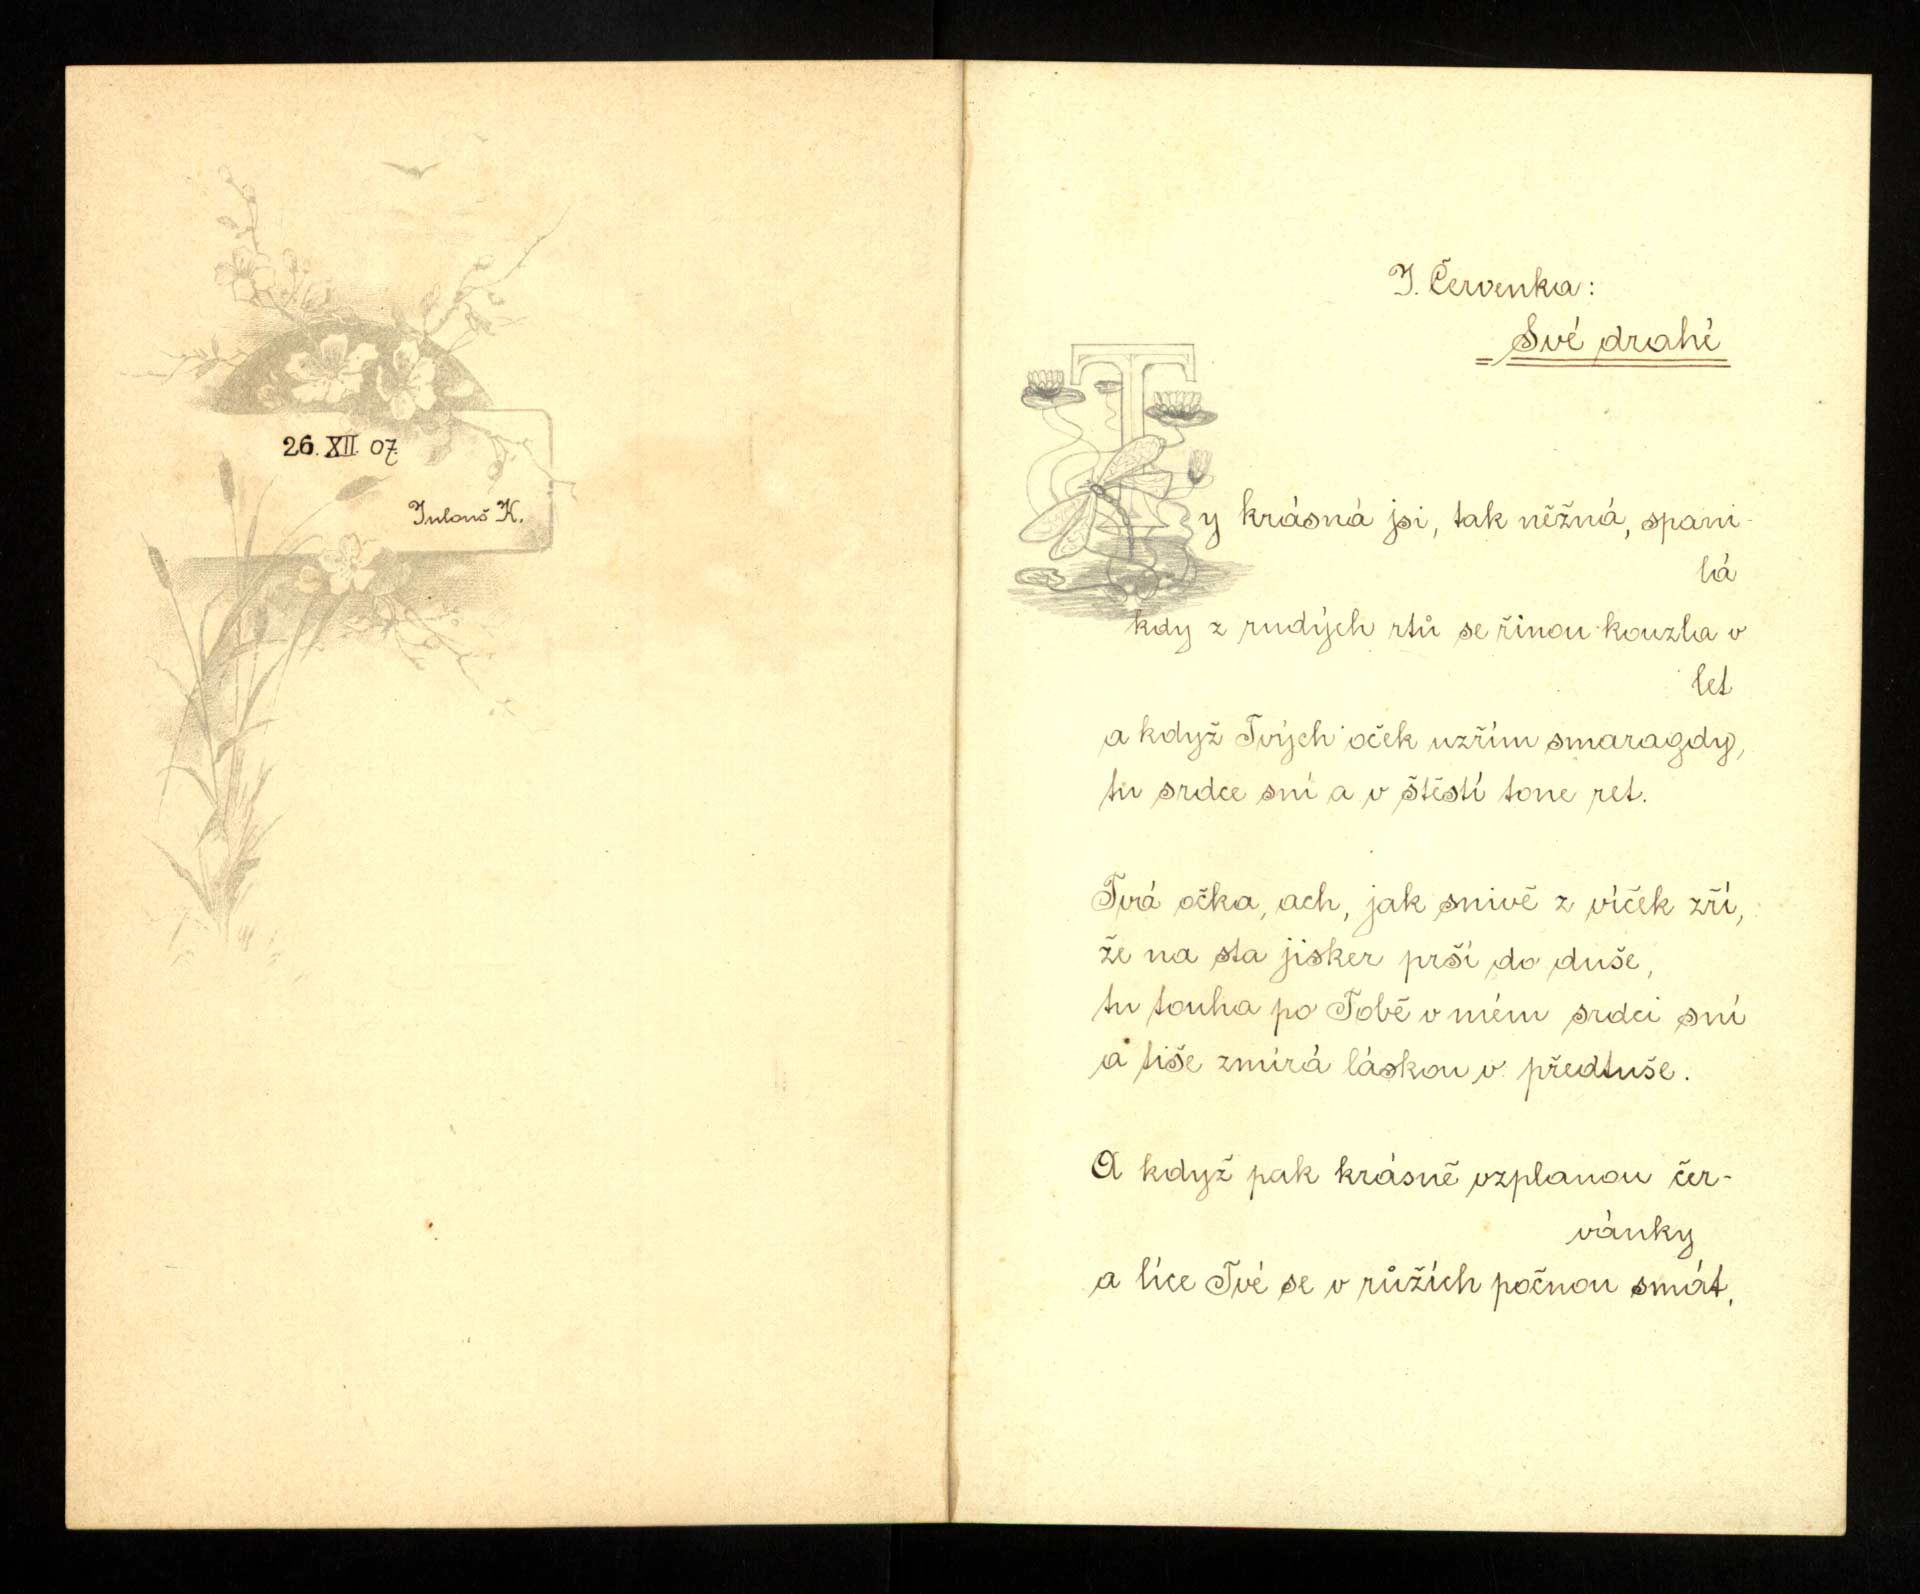 26. XII. 07.
Julouš K.
J. Červenka:
Své drahé
Ty krásná jsi, tak něžná, spani-
lá
kdy z rudých rtů se řinou kouzla v
let
a když Tvých oček uzřím smaragdy,
tu srdce sní a v štěstí tone ret.
Tvá očka, ach, jak snivě z víček zří,
že na sta jisker prší do duše,
tu touha po Tobě v mém srdci sní
a tiše zmírá láskou v předtuše.
A když pak krásně vzplanou čer-
vánky
a líce Tvé se v růžích počnou smát,